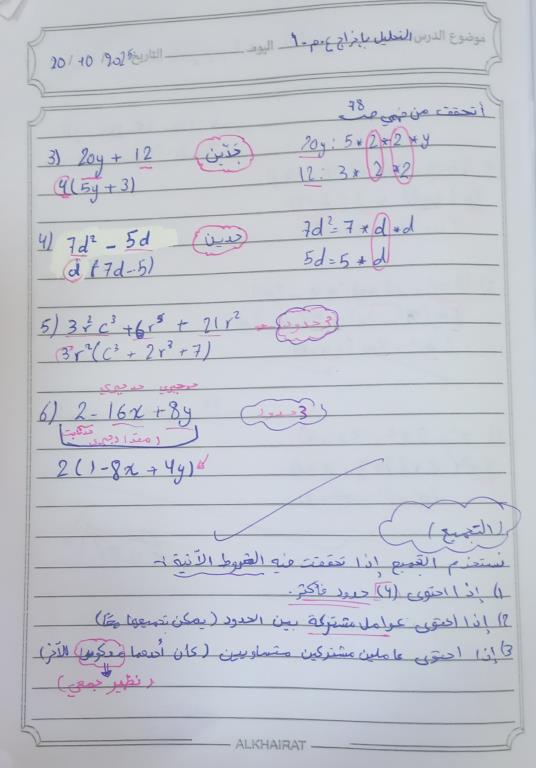 موضوع الدرس التحليل بإخراج ع.م.أ اليوم التاريخ 20/10/2025
أتحقق من فهمي ص 78
3) 20y + 12 حدّين 20y: 5 * 2 * 2 * y
4(5y + 3) 12: 3 * 2 * 2
4) 7d² - 5d حدين 7d² = 7 * d * d
d (7d - 5) 5d = 5 * d
5) 3r²c³ + 6r⁵ + 21r² 3 حدود
3r²(c³ + 2r³ + 7)
حد جبري حد جبري
6) 2 - 16x + 8y 3 حدود
مقدار جبري
2(1 - 8x + 4y)
(التجميع)
نستخدم التجميع إذا تحققت فيه الشروط الآتية :-
1) إذا احتوى (4) حدود فأكثر.
2) إذا احتوى عوامل مشتركة بين الحدود (يمكن تجميعها معًا)
3) إذا احتوى عاملين مشتركين متساويين (كان أحدهما معكوس الآخر)
(نظير جمعي)
ALKHAIRAT